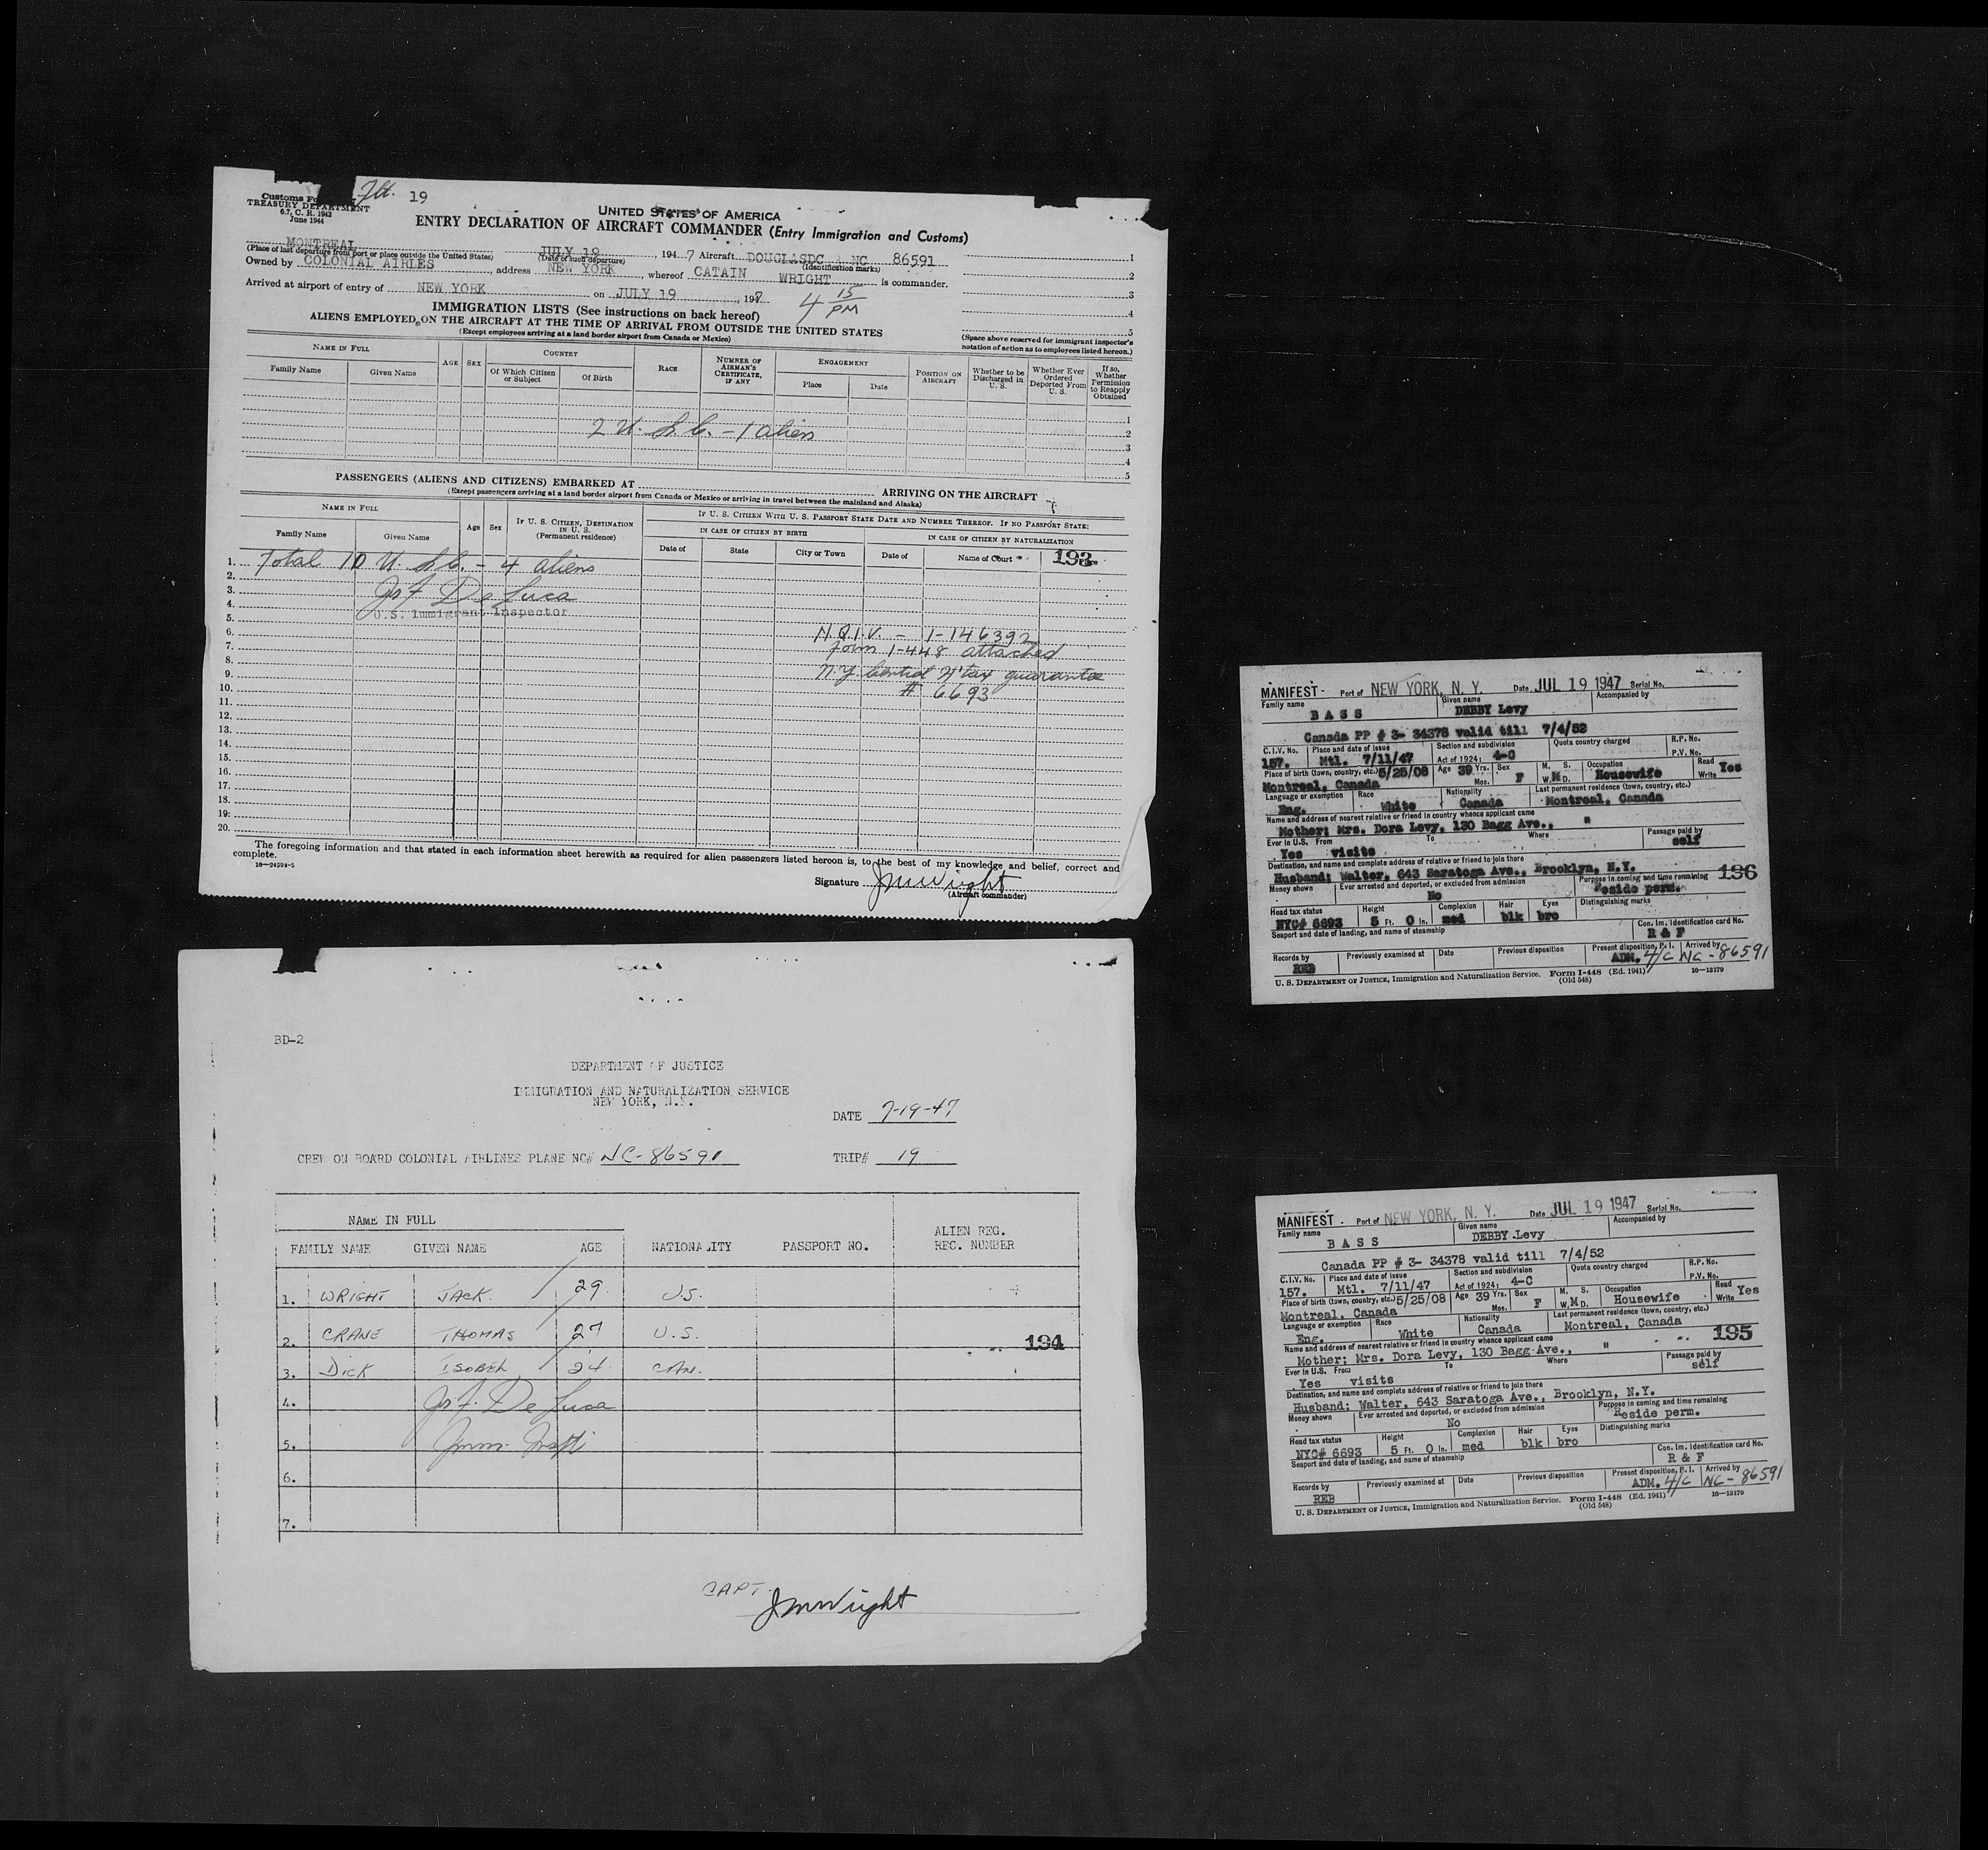 Customs Fo
TREASURY DEPARTMENT
6.7, C. R. 1943
June 1944
Flt. 19
UNITED STATES OF AMERICA
ENTRY DECLARATION OF AIRCRAFT COMMANDER (Entry Immigration and Customs)
MONTREAL JULY 19, 1947 Aircraft DOUGLASDC NC 86591
(Place of last departure from port or place outside the United States) (Date of such departure) (Identification marks)
Owned by COLONIAL AIRLES, address NEW YORK, whereof CATAIN WRIGHT is commander.
Arrived at airport of entry of NEW YORK on JULY 19, 1947 4 15 PM
1
2
3
4
5
IMMIGRATION LISTS (See instructions on back hereof)
ALIENS EMPLOYED ON THE AIRCRAFT AT THE TIME OF ARRIVAL FROM OUTSIDE THE UNITED STATES
(Except employees arriving at a land border airport from Canada or Mexico)
(Space above reserved for immigrant inspector's notation of action as to employees listed hereon.)
NAME IN FULL
Family Name Given Name
AGE SEX
COUNTRY
Of Which Citizen or Subject Of Birth
RACE
NUMBER OF AIRMAN'S CERTIFICATE, IF ANY
ENGAGEMENT
Place Date
POSITION ON AIRCRAFT
Whether to be Discharged in U. S.
Whether Ever Ordered Deported From U. S.
If so, Whether Permission to Reapply Obtained
1
2 U. S. C. - 1 alien 2
3
4
5
PASSENGERS (ALIENS AND CITIZENS) EMBARKED AT ARRIVING ON THE AIRCRAFT
(Except passengers arriving at a land border airport from Canada or Mexico or arriving in travel between the mainland and Alaska)
NAME IN FULL
Family Name Given Name
Age Sex
IF U. S. CITIZEN, DESTINATION IN U. S. (Permanent residence)
IF U. S. CITIZEN WITH U. S. PASSPORT STATE DATE AND NUMBER THEREOF. IF NO PASSPORT STATE:
IN CASE OF CITIZEN BY BIRTH IN CASE OF CITIZEN BY NATURALIZATION
Date of State City or Town Date of Name of Court 193
1. Total 10 U. S. C. - 4 aliens
2.
3. Jos F De Luca
4. U.S. Immigrant Inspector
5.
6. N.Q.I.V. - 1-146392
7. Form 1-448 attached
8.
9. N.Y. Central H'tax guarantee
10. # 6693
11.
12.
13.
14.
15.
16.
17.
18.
19.
20.
The foregoing information and that stated in each information sheet herewith as required for alien passengers listed hereon is, to the best of my knowledge and belief, correct and complete.
16—24594-5
Signature JMWright
(Aircraft commander)
BD-2
DEPARTMENT OF JUSTICE
IMMIGRATION AND NATURALIZATION SERVICE
NEW YORK, N.Y.
DATE 7-19-47
CREW ON BOARD COLONIAL AIRLINES PLANE NC# NC-86591 TRIP# 19
NAME IN FULL
FAMILY NAME GIVEN NAME AGE NATIONALITY PASSPORT NO. ALIEN REG. REC. NUMBER
1. WRIGHT JACK. 29. U.S.
2. CRANE THOMAS 27 U.S. 194
3. DICK ISOBEL 24 CAN.
4. Jos F. De Luca
5. Imm. Insp.
6.
7.
CAPT. JMWright
MANIFEST Port of NEW YORK, N. Y. Date JUL 19 1947 Serial No.
Family name Given name Accompanied by
BASS DEBBY Levy
Canada PP # 3- 34378 valid till 7/4/52
C.I.V. No. Place and date of issue Section and subdivision Quota country charged R.P. No.
157. Mtl. 7/11/47 Act of 1924: 4-C P.V. No.
Place of birth (town, country, etc.) 5/25/08 Age 39 Yrs. Mos. Sex F M. S. W. M D. Occupation Housewife Read Write Yes
Montreal, Canada
Language or exemption Race Nationality Last permanent residence (town, country, etc.)
Eng. White Canada Montreal, Canada
Name and address of nearest relative or friend in country whence applicant came
Mother; Mrs. Dora Levy, 130 Bagg Ave., "
Ever in U.S. From To Where Passage paid by
Yes visits self
Destination, and name and complete address of relative or friend to join there
Husband; Walter, 643 Saratoga Ave., Brooklyn, N.Y.
Money shown Ever arrested and deported, or excluded from admission Purpose in coming and time remaining 196
No Reside perm.
Head tax status Height Complexion Hair Eyes Distinguishing marks
NYC# 6693 5 Ft. 0 In. med blk bro
Seaport and date of landing, and name of steamship Con. Im. Identification card No.
R & F
Records by Previously examined at Date Previous disposition Present disposition, P. I. Arrived by
REB ADM. 4/C NC-86591
U. S. DEPARTMENT OF JUSTICE, Immigration and Naturalization Service. Form I-448 (Ed. 1941) 16—13179
(Old 548)
MANIFEST Port of NEW YORK, N. Y. Date JUL 19 1947 Serial No.
Family name Given name Accompanied by
BASS DEBBY Levy
Canada PP # 3- 34378 valid till 7/4/52
C.I.V. No. Place and date of issue Section and subdivision Quota country charged R.P. No.
157. Mtl. 7/11/47 Act of 1924: 4-C P.V. No.
Place of birth (town, country, etc.) 5/25/08 Age 39 Yrs. Mos. Sex F M. S. W. M D. Occupation Housewife Read Write Yes
Montreal, Canada
Language or exemption Race Nationality Last permanent residence (town, country, etc.)
Eng. White Canada Montreal, Canada
Name and address of nearest relative or friend in country whence applicant came 195
Mother; Mrs. Dora Levy, 130 Bagg Ave., "
Ever in U.S. From To Where Passage paid by
Yes visits self
Destination, and name and complete address of relative or friend to join there
Husband; Walter, 643 Saratoga Ave., Brooklyn, N.Y.
Money shown Ever arrested and deported, or excluded from admission Purpose in coming and time remaining
No Reside perm.
Head tax status Height Complexion Hair Eyes Distinguishing marks
NYC# 6693 5 Ft. 0 In. med blk bro
Seaport and date of landing, and name of steamship Con. Im. Identification card No.
R & F
Records by Previously examined at Date Previous disposition Present disposition, P. I. Arrived by
REB ADM. 4/C NC-86591
U. S. DEPARTMENT OF JUSTICE, Immigration and Naturalization Service. Form I-448 (Ed. 1941) 16—13179
(Old 548)